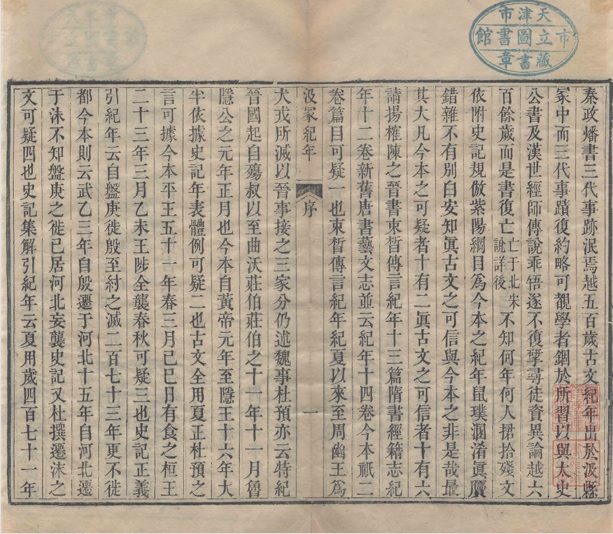 天津市
市立圖書館
藏書章
秦政燔書三代事跡泯焉越五百歲古文紀年出於汲縣
冢中而三代事蹟復約略可覩學者錮於所習以與太史
公書及漢世經師傳說乖牾遂不復擘尋徒資異論越六
百餘歲而是書復亡亡于北宋說詳後不知何年何人捃拾殘文
依附史記規倣紫陽綱目為今本之紀年鼠璞溷淆真贗
錯雜不有別白安知真古文之可信與今本之非是哉最
其大凡今本之可疑者十有二真古文之可信者十有六
請揚榷陳之晉書束晳傳言紀年十三篇隋書經籍志紀
年十二卷新舊唐書藝文志並云紀年十四卷今本祇二
卷篇目可疑一也束晳傳言紀年紀夏以來至周幽王為
汲冢紀年
序
一
犬戎所滅以晉事接之三家分仍述魏事杜預亦云特紀
晉國起自殤叔以至曲沃莊伯莊伯之十一年十一月魯
隱公之元年正月也今本自黃帝元年至隱王十六年大
半依據史記年表體例可疑二也古文全用夏正杜預之
言可據今本平王五十一年春三月己巳日有食之桓王
二十三年三月乙未王陟全襲春秋可疑三也史記正義
引紀年云自盤庚徙殷至紂之滅二百七十三年更不徙
都今本則云武乙三年自殷遷于河北十五年自河北遷
于沬不知盤庚之徙已居河北妄襲史記又杜撰遷沬之
文可疑四也史記集解引紀年云夏用歲四百七十一年